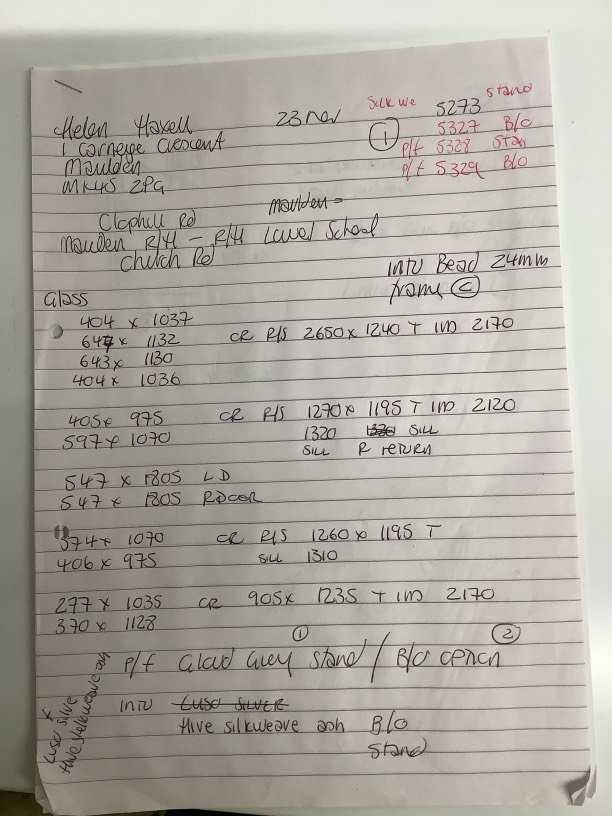 Silk we 5273 stand
Helen Haxell 23 nov 5327 B/O
1 Carnegie Crescent ① P/f 5328 Stan
Maulden P/f 5329 B/O
MK45 2PG
Clophill Rd maulden
Maulden R/H - R/H Lower School
Church Rd
INTU Bead 24mm
frame Ⓒ
Glass
404 x 1037
647 x 1132 CR P/S 2650 x 1240 T IND 2170
643 x 1130
404 x 1036
405 x 975 CR P/S 1270 x 1195 T IND 2120
597 x 1070 1320 SILL
SILL R return
547 x 1805 LD
547 x 1805 RDOOR
574 x 1070 CR P/S 1260 x 1195 T
406 x 975 SILL 1310
277 x 1035 CR 905 x 1235 T IND 2170
370 x 1128
① ②
P/f Cloud Grey stand / B/O
INTU LUSO SILVER
Hive silkweave ash B/O
Stand
Luso silve x
Hive silkweave ash